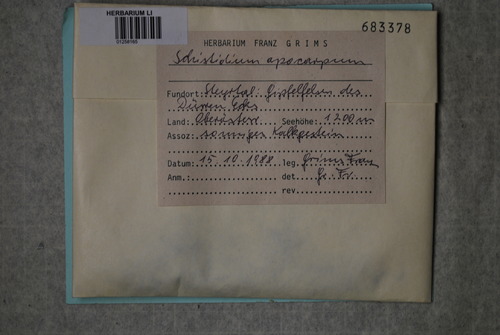 HERBARIUM LI
683378
HERBARIUM FRANZ GRIMS
Schistidium apocarpum
Fundort: Steyrtal: Gipfelfelsen des
Dürren Ecks
Land: Oberösterr Seehöhe: 1200 m
Assoz: sonniges Kalkgestein
Datum: 15.10.1988 leg. Grims Franz
Anm.: det Gr. Fr.
rev.